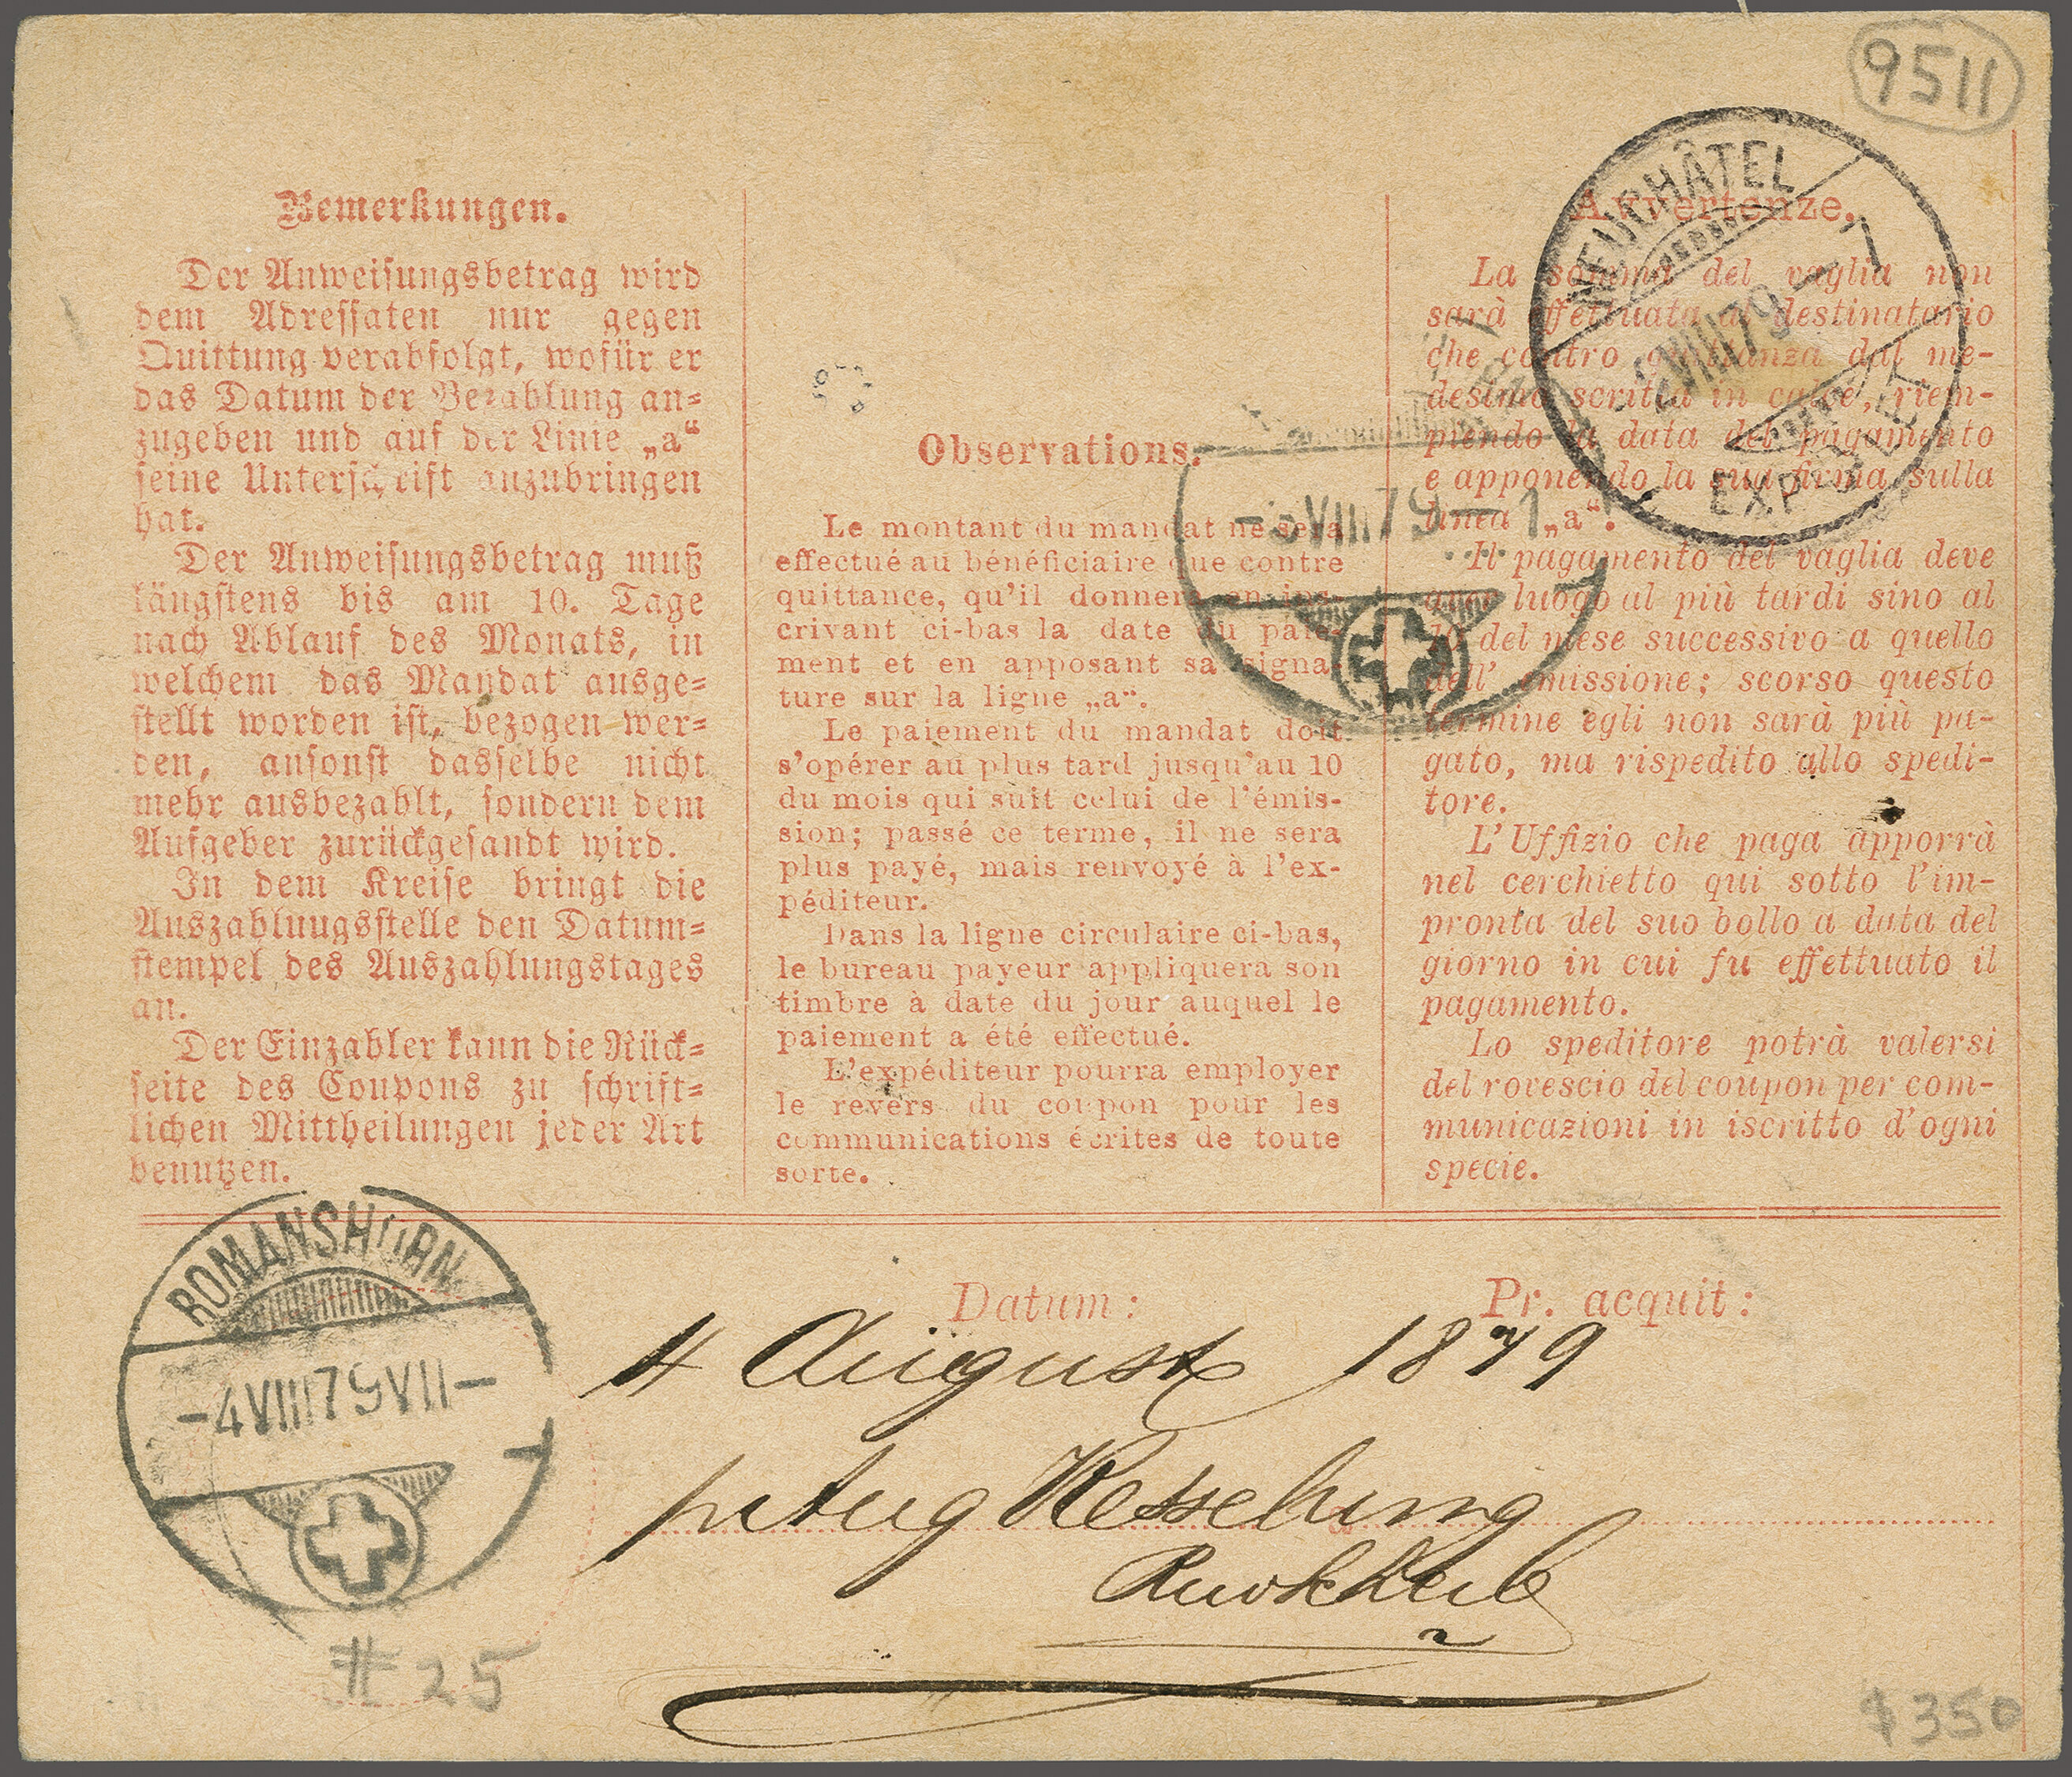 9511
NEUCHÂTEL
EXP. LET.
Bemerkungen.
Der Anweisungsbetrag wird
dem Adressaten nur gegen
Quittung verabfolgt, wofür er
das Datum der Bezahlung an=
zugeben und auf der Linie „a“
seine Unterschrift anzubringen
hat.
Der Anweisungsbetrag muß
längstens bis am 10. Tage
nach Ablauf des Monats, in
welchem das Mandat ausge=
stellt worden ist, bezogen wer=
den, ansonst dasselbe nicht
mehr ausbezahlt, sondern dem
Aufgeber zurückgesandt wird.
In dem Kreise bringt die
Auszahlungsstelle den Datum=
stempel des Auszahlungstages
an.
Der Einzahler kann die Rück=
seite des Coupons zu schrift=
lichen Mittheilungen jeder Art
benutzen.
Observations.
Le montant du mandat ne sera
effectué au bénéficiaire que contre
quittance, qu'il donnera en ins-
crivant ci-bas la date du paie-
ment et en apposant sa signa-
ture sur la ligne „a“.
Le paiement du mandat doit
s'opérer au plus tard jusqu'au 10
du mois qui suit celui de l'émis-
sion; passé ce terme, il ne sera
plus payé, mais renvoyé à l'ex-
péditeur.
Dans la ligne circulaire ci-bas,
le bureau payeur appliquera son
timbre à date du jour auquel le
paiement a été effectué.
L'expéditeur pourra employer
le revers du coupon pour les
communications écrites de toute
sorte.
Avvertenze.
La somma del vaglia non
sarà effettuata al destinatario
che contro quittanza dal me-
desimo scritta in calce, riem-
piendo la data del pagamento
e apponendo la sua firma sulla
linea „a“.
Il pagamento del vaglia deve
aver luogo al più tardi sino al
10 del mese successivo a quello
dell' emissione; scorso questo
termine egli non sarà più pa-
gato, ma rispedito allo spedi-
tore.
L'Uffizio che paga apporrà
nel cerchietto qui sotto l'im-
pronta del suo bollo a data del
giorno in cui fu effettuato il
pagamento.
Lo speditore potrà valersi
del rovescio del coupon per com-
municazioni in iscritto d'ogni
specie.
VIII 79 – 1
ROMANSHORN
-4 VIII 79 VII-
Datum:
Pr. acquit:
4 August 1879
Kesselring
a
# 25
$350